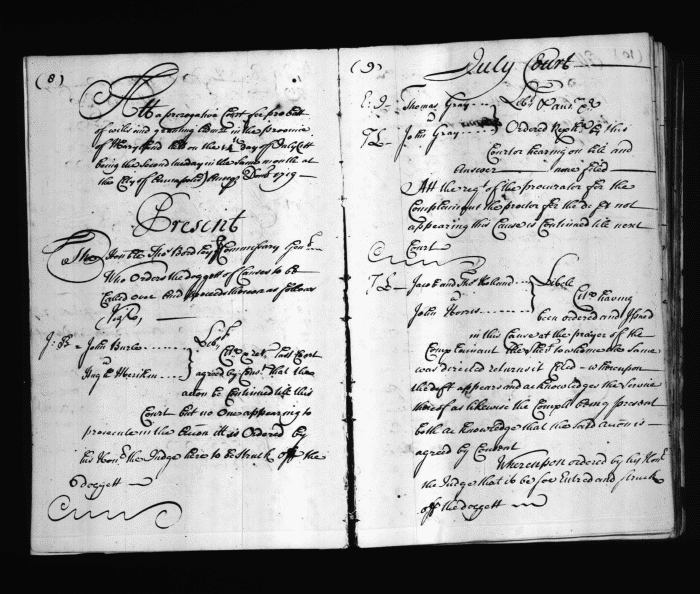 (8)
Att a prerogative Court for probat
of wills and granting Admõn in the province
of Maryland held on the 14 day of July Ctt
being the second tuesday in the same month at
the City of Annapolis Annoq Domi 1719 —
Present
The Honble Thos Bordley Esqr Commissary Genll
Who Orders the doggett of Causes to be
Called over And proceeds thereon as follows
Vizt
John Burle ...... } Libl
v
agreed by Const that the
accon be Continued till this
Court but no One appearing to
prosecute in the accon it is Ordered by
his Honr the Judge here to be struck off the
doggett
(9)
July Court
Thomas Gray .... } Libl & ansr &c
v
TL — John Gray ..... Ordered Replicn by this
Court or hearing on bill and
Answer — none filed
Att the reqt of the procurator for the
Complainant the proctor for the deft not
appearing this Cause is Continued till next
Court
TL — Jacob and Thos Holland ... } Libell
v
John Norris ........ Citn having
been ordered and Issued
in this Cause at the prayer of the
Complainant the Shff to whome the same
was directed returns it filed — whereupon
the deft appears and acknowledges the Service
thereof as likewise the Complt being present
both acknowledge that the said accon is —
agreed by Consent
Whereupon ordered by his Honr
the Judge that it be soe Entred and struck
off the doggett